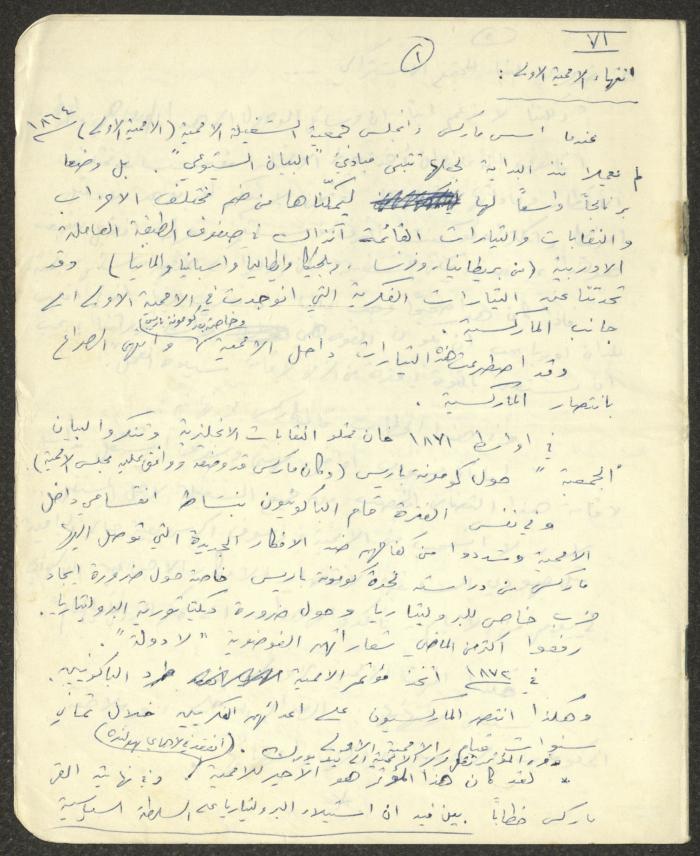 ٧١
١
انتهاء الاممية الاولى :
عندما اسس ماركس وانجلس جمعية الشغيلة الاممية (الاممية الاولى) ١٨٦٤
لم يعملا منذ البداية لجعلها تتبنى مبادئ "البيان الشيوعي". بل وضعا
برنامجاً واسعاً لها ليمكناها من ضم مختلف الاحزاب
والنقابات والتيارات القائمة آنذاك في صفوف الطبقة العاملة
الاوربية (من بريطانيا، وفرنسا، وبلجيكا وايطاليا واسبانيا والمانيا) وقد
تحدثنا عن التيارات الفكرية التي انوجدت في الاممية الاولى الى
جانب الماركسية.
وخاصة بعد كومونة باريس
وقد اصطرعت هذه التيارات داخل الاممية وانتهى الصراع
بانتصار الماركسية.
في اواسط ١٨٧١ خان ممثلو النقابات الانجليزية وتنكروا لبيان
"الجمعية" حول كومونة باريس (وكان ماركس قد وضعه ووافق عليه مجلس الاممية).
وفي نفس الفترة قام الباكونيون بنشاط انقسامي داخل
الاممية وشددوا من كفاحهم ضد الافكار الجديدة التي توصل اليها
ماركس من دراسته لتجربة كومونة باريس خاصة حول ضرورة ايجاد
حزب خاص للبروليتاريا وحول ضرورة ديكتاتورية البروليتاريا.
رفعوا اكثر من الماضي شعاراتهم الفوضوية "لا دولة".
في ١٨٧٢ اتخذ مؤتمر الاممية طرد الباكونيين.
وهكذا انتصر الماركسيون على اعدائهم الفكريين خلال ثماني
سنوات من قيام الاممية الاولى. (انعقد في لاهاي بهولندة)
المؤتمر نقل مركز الاممية الى نيويورك.
* لقد كان هذا المؤتمر هو الاخير للاممية. وفي نهايته القى
ماركس خطاباً بين فيه ان استيلاء البروليتاريا على السلطة السياسية